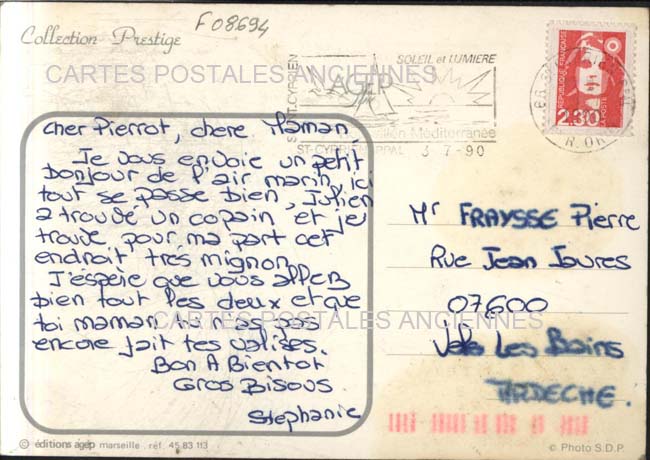 F08694
Collection Prestige
CARTES POSTALES ANCIENNES
SOLEIL et LUMIERE
AGEP
Méditerranée
3-7-90
REPUBLIQUE FRANÇAISE
LA POSTE
2.30
Cher Pierrot, chere Maman
Je vous envoie un petit
bonjour de l'air marin, ici
tout se passe bien, Julien
a trouvé un copain et je
trouve pour ma part cet
endroit très mignon
J'espère que vous allez
bien tout les deux et que
toi maman tu n'as pas
encore fait tes valises.
Bon A Bientot
Gros Bisous
Stephanie
Mr FRAYSSE Pierre
Rue Jean Jaures
07600
Vals Les Bains
ARDECHE.
CARTES POSTALES ANCIENNES
© éditions agep marseille . réf. 45 83 113
© Photo S.D.P.